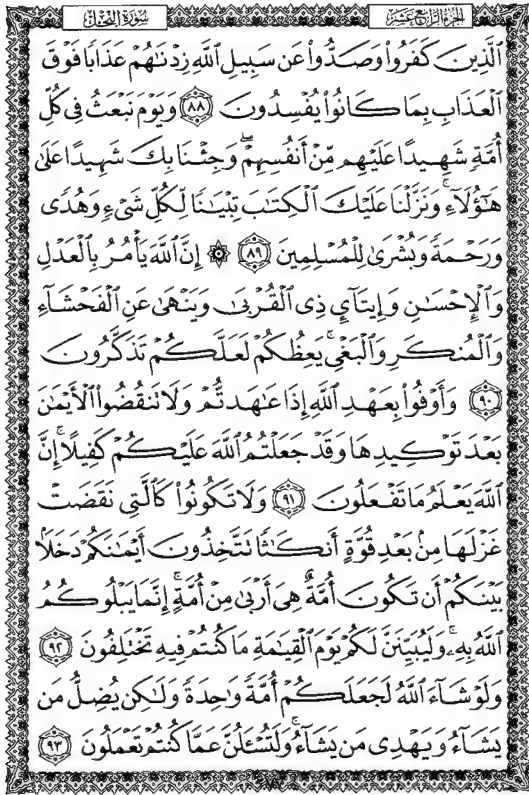 سُورَةُ النَّحْلِ الجُزْءُ الرَّابِعَ عَشَرَ
ٱلَّذِينَ كَفَرُوا۟ وَصَدُّوا۟ عَن سَبِيلِ ٱللَّهِ زِدْنَٰهُمْ عَذَابًا فَوْقَ
ٱلْعَذَابِ بِمَا كَانُوا۟ يُفْسِدُونَ ٨٨ وَيَوْمَ نَبْعَثُ فِى كُلِّ
أُمَّةٍ شَهِيدًا عَلَيْهِم مِّنْ أَنفُسِهِمْ ۖ وَجِئْنَا بِكَ شَهِيدًا عَلَىٰ
هَٰٓؤُلَآءِ ۚ وَنَزَّلْنَا عَلَيْكَ ٱلْكِتَٰبَ تِبْيَٰنًا لِّكُلِّ شَىْءٍ وَهُدًى
وَرَحْمَةً وَبُشْرَىٰ لِلْمُسْلِمِينَ ٨٩ ۞ إِنَّ ٱللَّهَ يَأْمُرُ بِٱلْعَدْلِ
وَٱلْإِحْسَٰنِ وَإِيتَآئِ ذِى ٱلْقُرْبَىٰ وَيَنْهَىٰ عَنِ ٱلْفَحْشَآءِ
وَٱلْمُنكَرِ وَٱلْبَغْىِ ۚ يَعِظُكُمْ لَعَلَّكُمْ تَذَكَّرُونَ
٩٠ وَأَوْفُوا۟ بِعَهْدِ ٱللَّهِ إِذَا عَٰهَدتُّمْ وَلَا تَنقُضُوا۟ ٱلْأَيْمَٰنَ
بَعْدَ تَوْكِيدِهَا وَقَدْ جَعَلْتُمُ ٱللَّهَ عَلَيْكُمْ كَفِيلًا ۚ إِنَّ
ٱللَّهَ يَعْلَمُ مَا تَفْعَلُونَ ٩١ وَلَا تَكُونُوا۟ كَٱلَّتِى نَقَضَتْ
غَزْلَهَا مِنۢ بَعْدِ قُوَّةٍ أَنكَٰثًا تَتَّخِذُونَ أَيْمَٰنَكُمْ دَخَلًۢا
بَيْنَكُمْ أَن تَكُونَ أُمَّةٌ هِىَ أَرْبَىٰ مِنْ أُمَّةٍ ۚ إِنَّمَا يَبْلُوكُمُ
ٱللَّهُ بِهِۦ ۚ وَلَيُبَيِّنَنَّ لَكُمْ يَوْمَ ٱلْقِيَٰمَةِ مَا كُنتُمْ فِيهِ تَخْتَلِفُونَ ٩٢
وَلَوْ شَآءَ ٱللَّهُ لَجَعَلَكُمْ أُمَّةً وَٰحِدَةً وَلَٰكِن يُضِلُّ مَن
يَشَآءُ وَيَهْدِى مَن يَشَآءُ ۚ وَلَتُسْـَٔلُنَّ عَمَّا كُنتُمْ تَعْمَلُونَ ٩٣